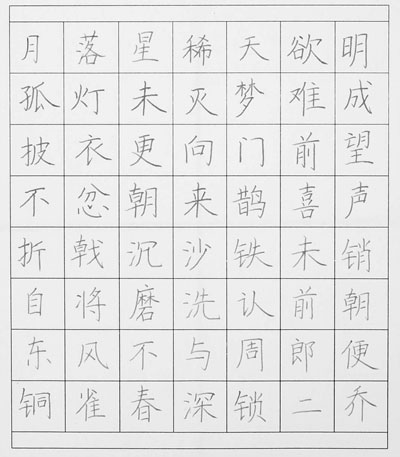 月落星稀天欲明
孤灯未灭梦难成
披衣更向门前望
不忿朝来鹊喜声
折戟沉沙铁未销
自将磨洗认前朝
东风不与周郎便
铜雀春深锁二乔